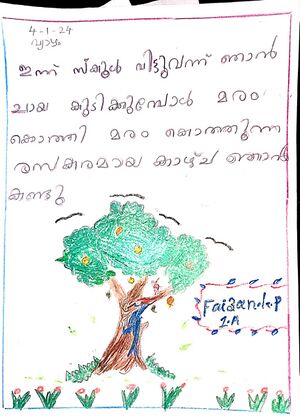 4-1-24
വ്യാഴം
ഇന്ന് സ്കൂൾ വിട്ടുവന്ന് ഞാൻ
ചായ കുടിക്കുമ്പോൾ മരം
കൊത്തി മരം കൊത്തുന്ന
രസകരമായ കാഴ്ച ഞാൻ
കണ്ടു
Faizan.k.P
1.A